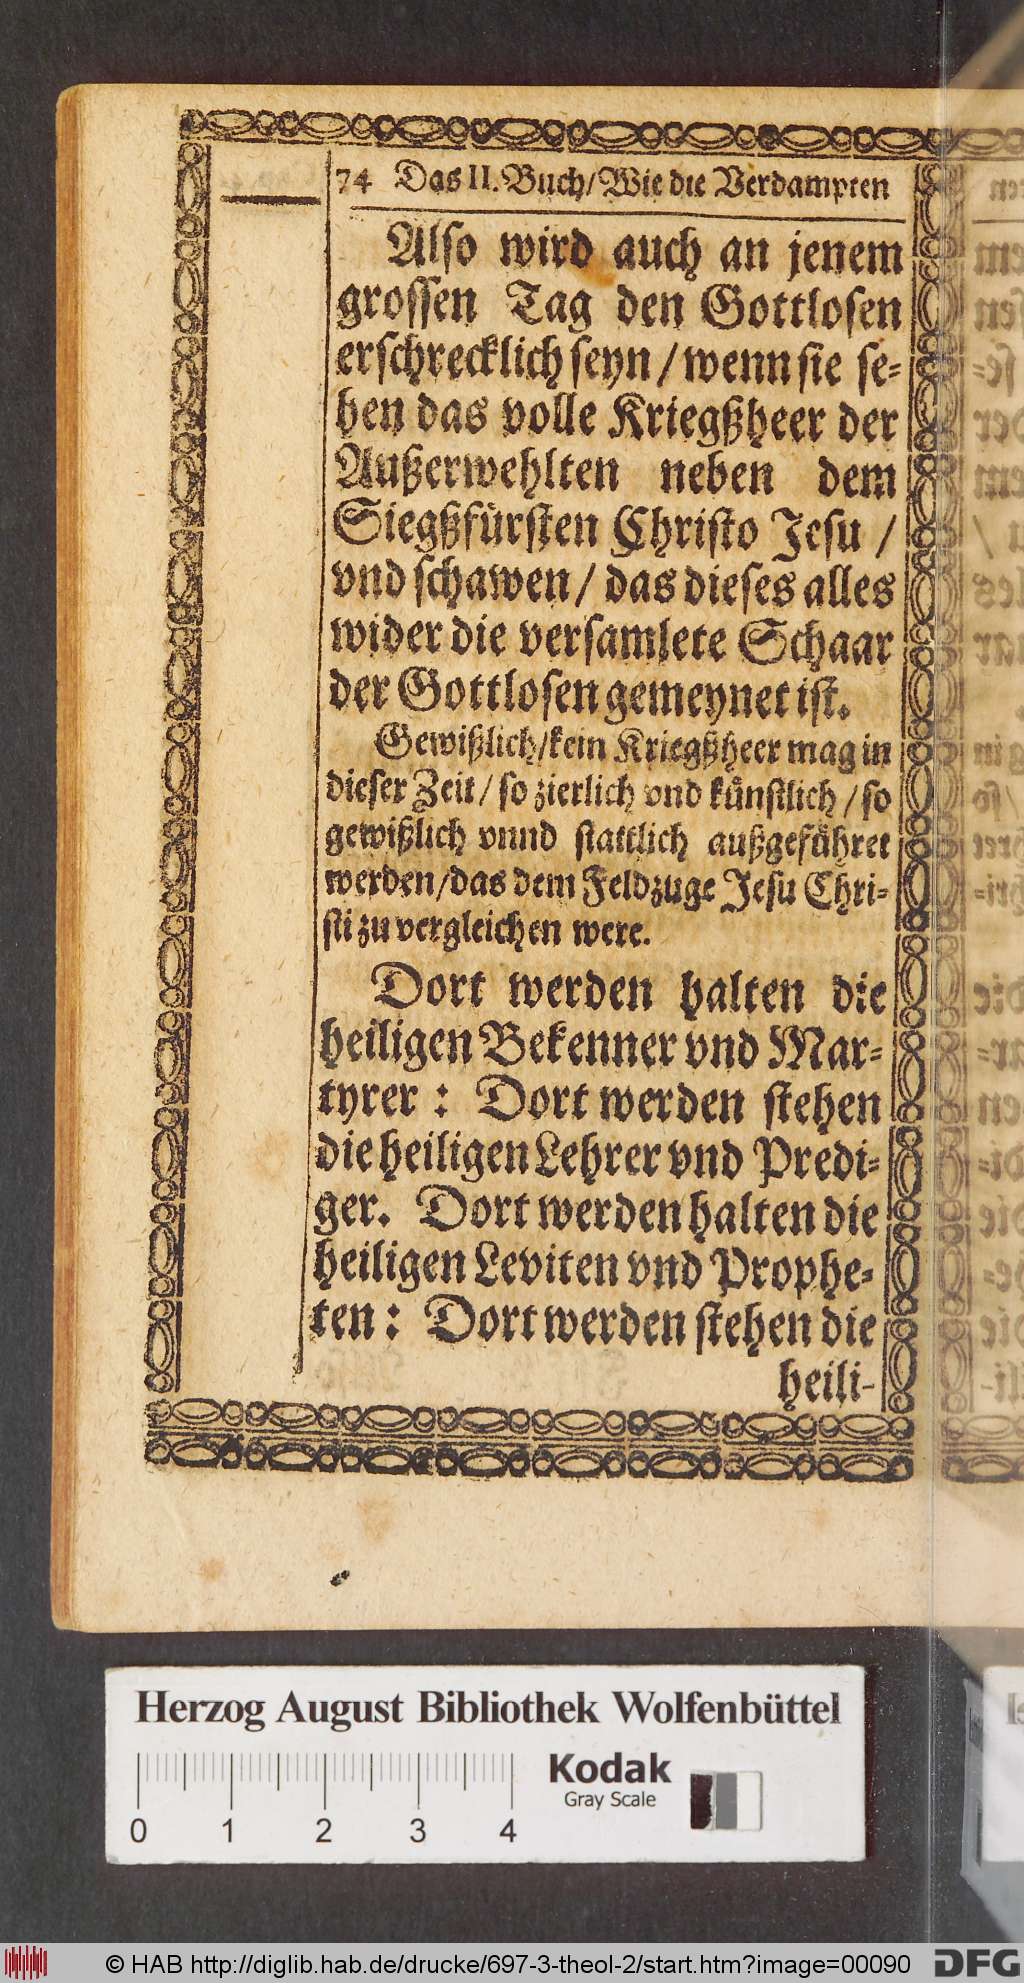 74 Das II. Buch/Wie die Verdampten
Also wird auch an jenem
grossen Tag den Gottlosen
erschrecklich seyn / wenn sie se-
hen das volle Kriegßheer der
Außerwehlten neben dem
Siegßfürsten Christo Jesu /
vnd schawen / das dieses alles
wider die versamlete Schaar
der Gottlosen gemeynet ist.
Gewißlich/kein Kriegßheer mag in
dieser Zeit / so zierlich vnd kuͤnstlich / so
gewißlich vnnd stattlich außgefuͤhret
werden/das dem Feldzuge Jesu Chri-
sti zu vergleichen were.
Dort werden halten die
heiligen Bekenner vnd Mar-
tyrer : Dort werden stehen
die heiligen Lehrer vnd Predi-
ger. Dort werden halten die
heiligen Leviten vnd Prophe-
ten : Dort werden stehen die
heili-
Herzog August Bibliothek Wolfenbüttel
Kodak
Gray Scale
0 1 2 3 4
© HAB http://diglib.hab.de/drucke/697-3-theol-2/start.htm?image=00090
DFG